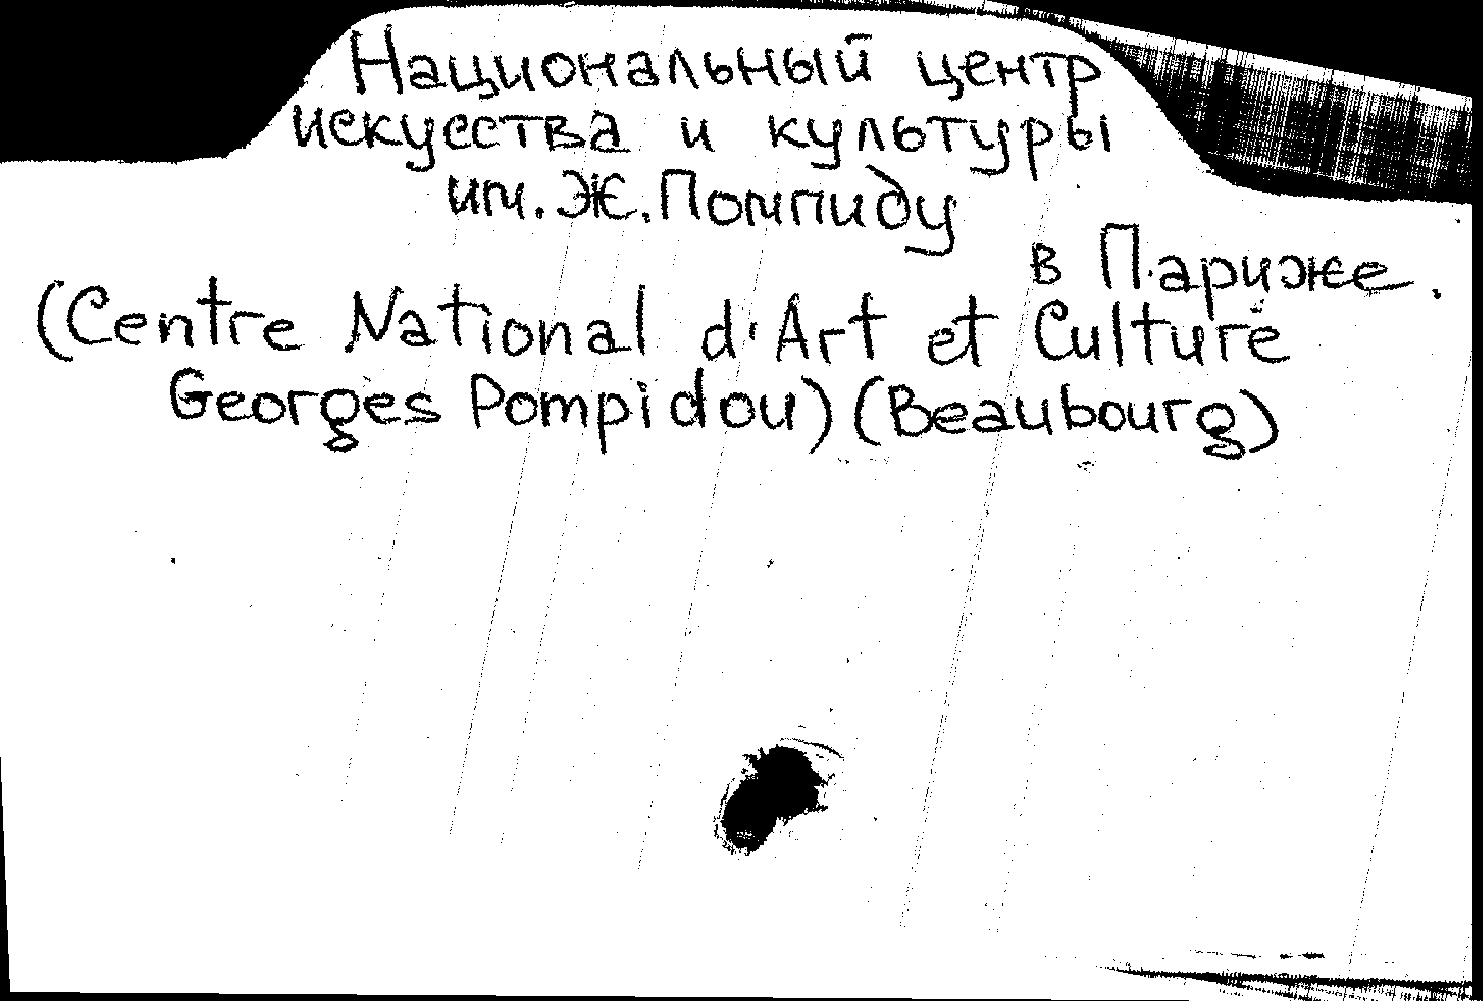 Национальный центр
искусства и культуры
им. Ж. Помпиду
в Париже.
(Centre National d'Art et Culture
Georges Pompidou) (Beaubourg)